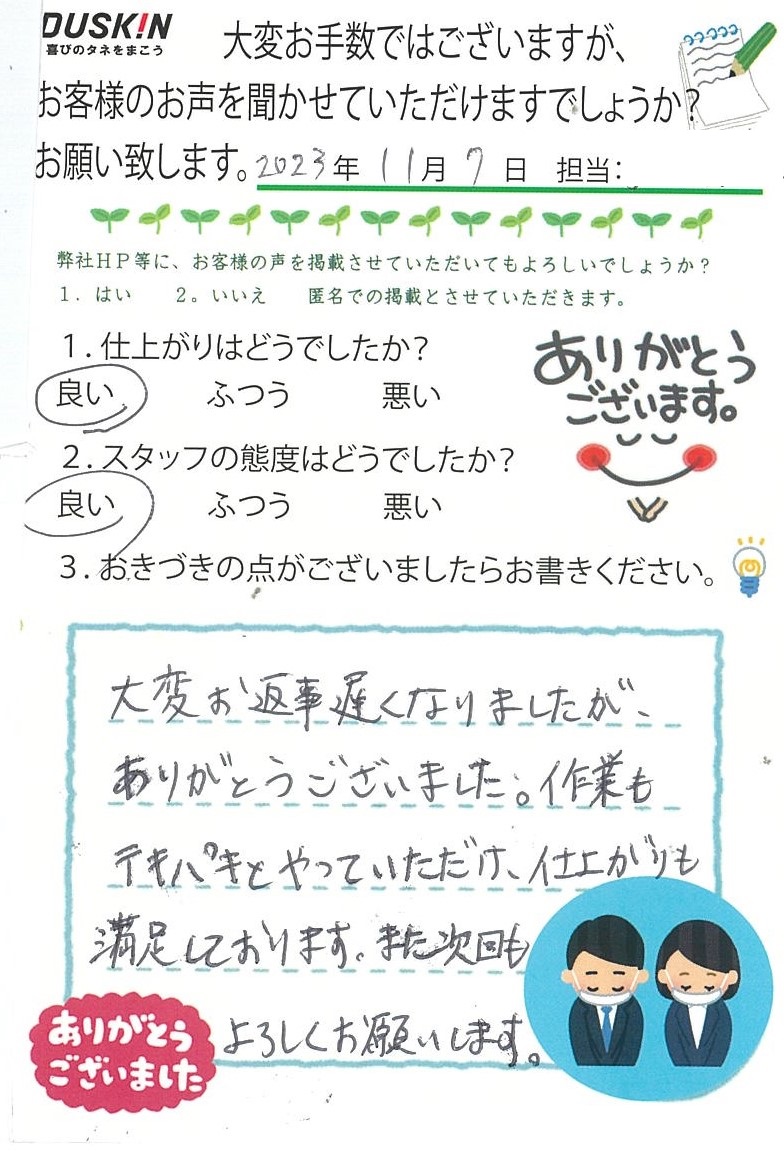 DUSK!N
喜びのタネをまこう
大変お手数ではございますが、
お客様のお声を聞かせていただけますでしょうか?
お願い致します。2023年 11月 7日 担当:
弊社HP等に、お客様の声を掲載させていただいてもよろしいでしょうか?
1. はい 2。いいえ 匿名での掲載とさせていただきます。
1. 仕上がりはどうでしたか?
良い ふつう 悪い
ありがとう
ございます。
2. スタッフの態度はどうでしたか?
良い ふつう 悪い
3. おきづきの点がございましたらお書きください。
大変お返事遅くなりましたが、
ありがとうございました。作業も
テキパキとやっていただけ、仕上がりも
満足しております。また次回も
よろしくお願いします。
ありがとう
ございました